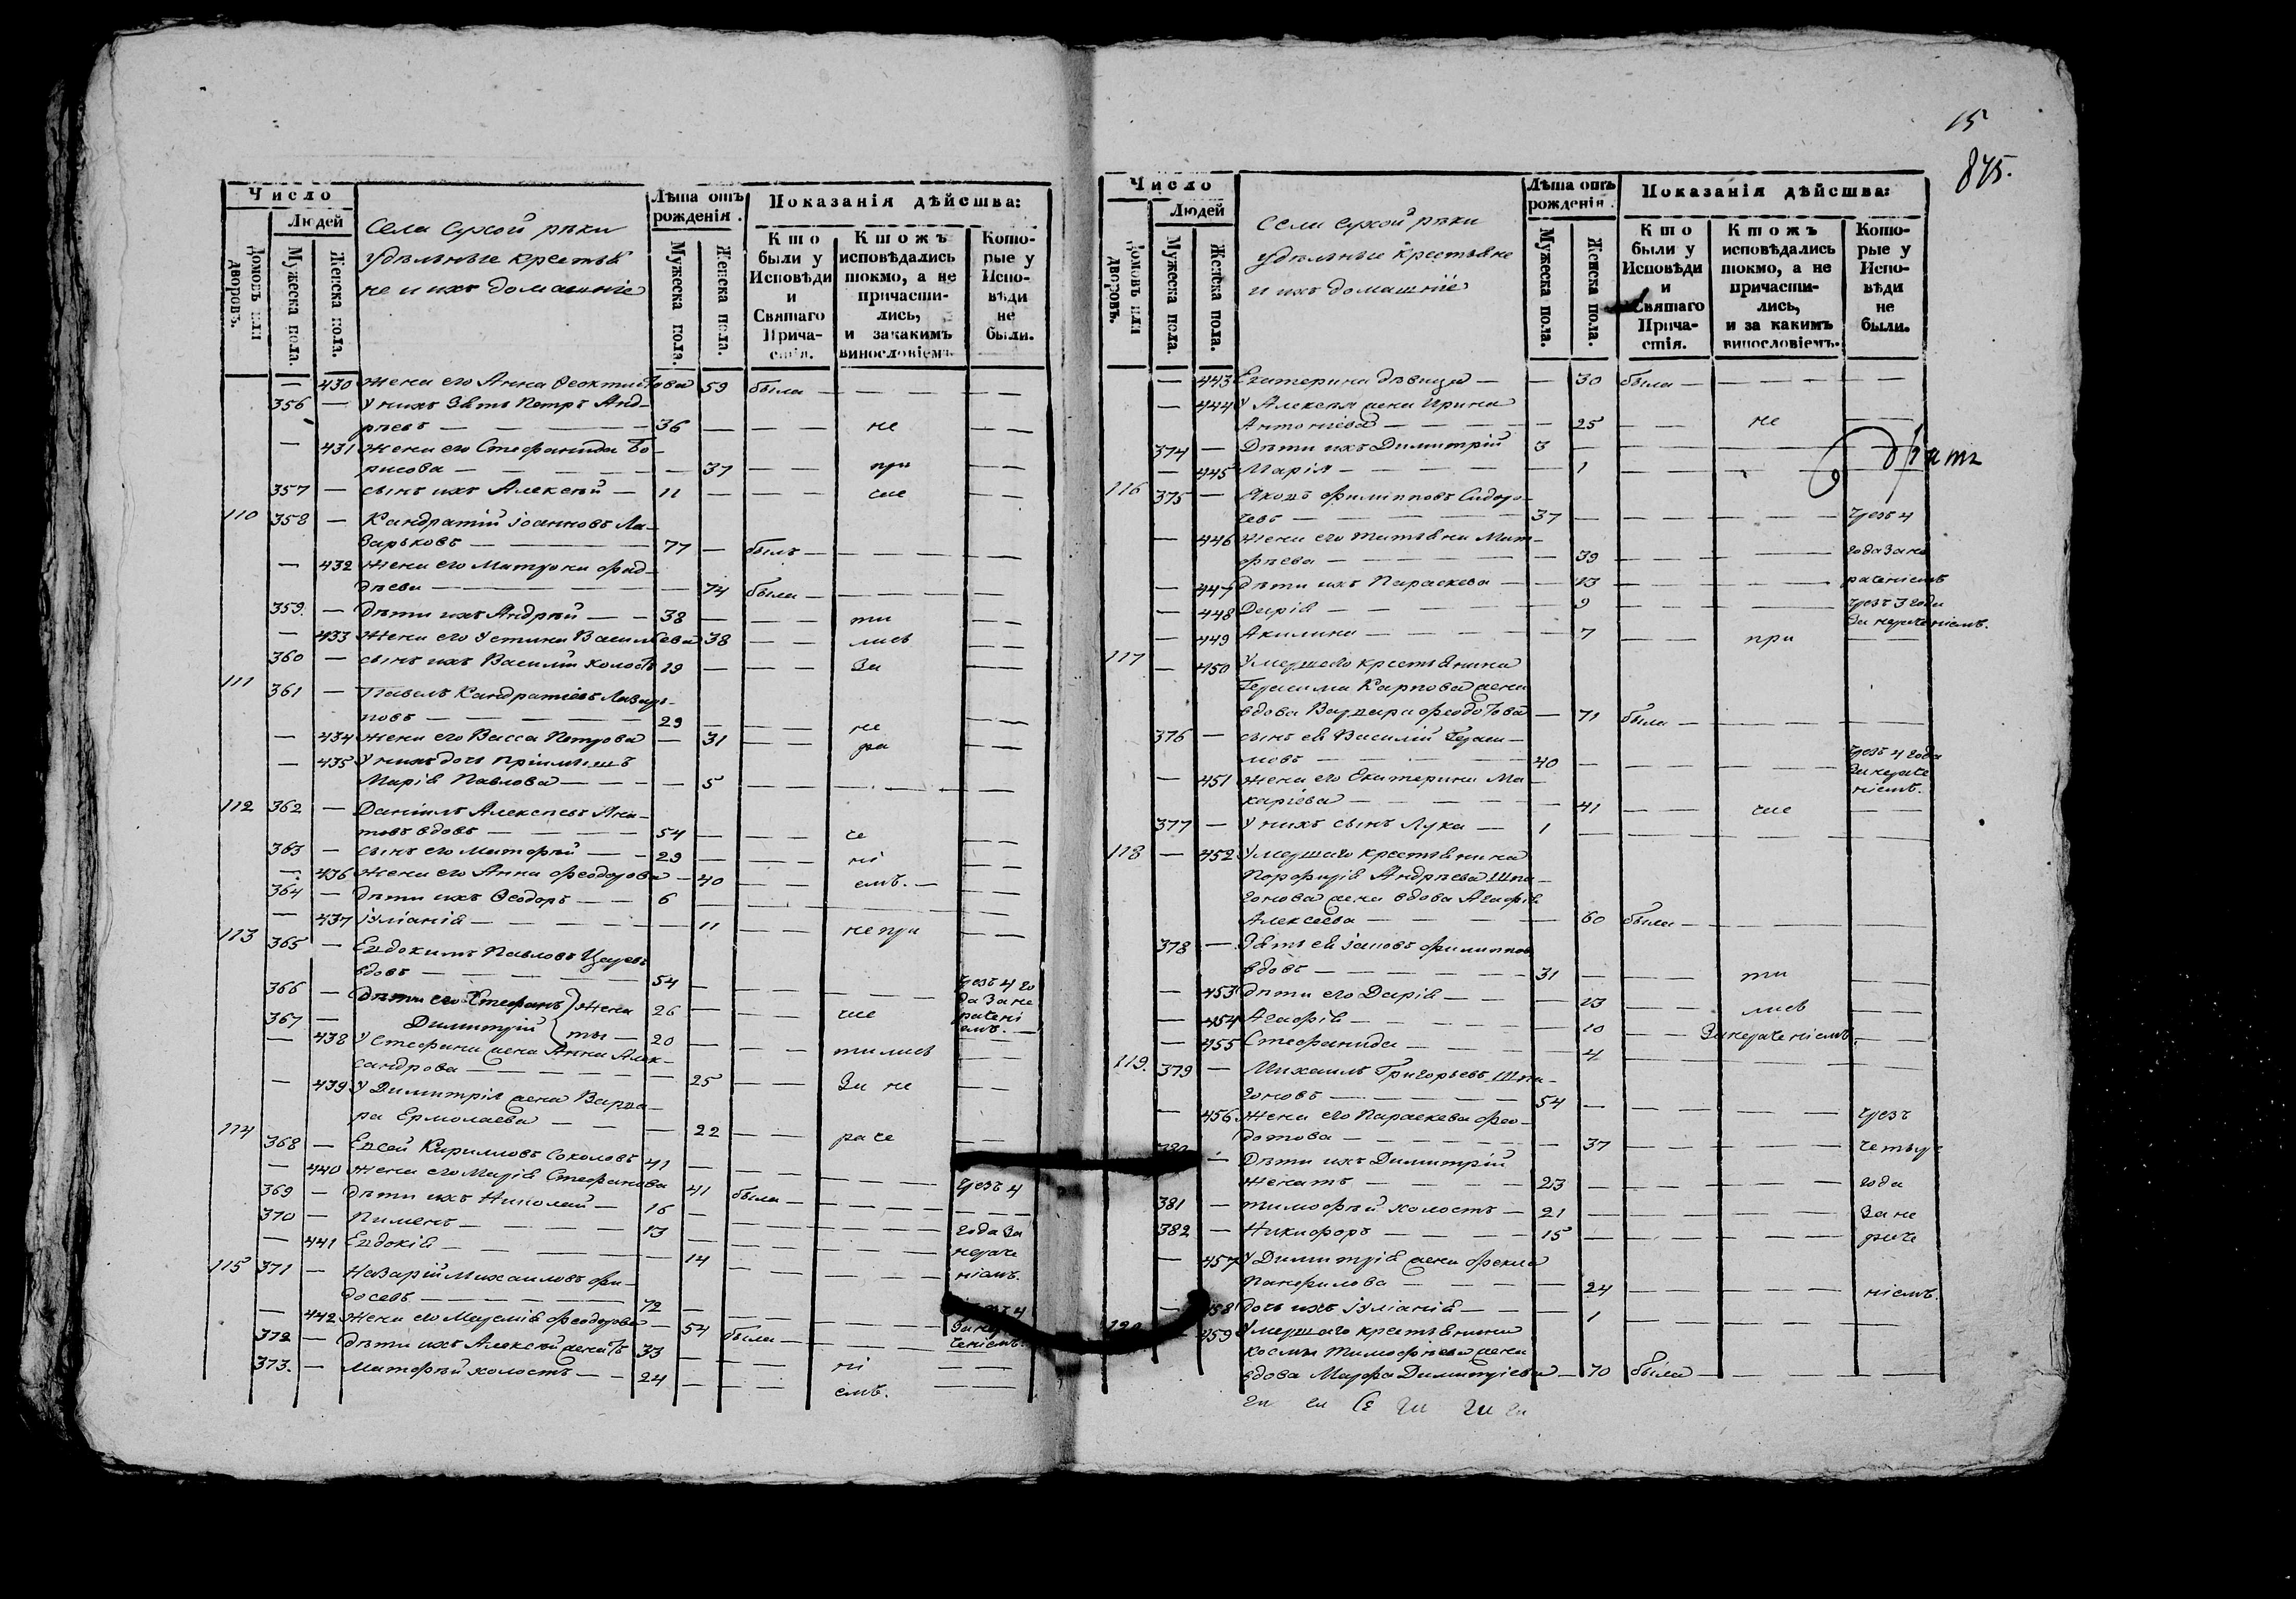 Число
Людей
Домовъ или дворовъ.
Мужеска пола.
Женска пола.
Села сухой рѣки
удѣльные крестья
не и ихъ домашніе
Лѣта отъ рожденія.
Мужеска пола.
Женска пола.
Показанія дѣйства:
Кто были у Исповѣди и Святаго Причастія.
Ктожъ исповѣдались токмо, а не причастились, и закакимъ винословіемъ.
Которые у Исповѣди не были.
— 430 жена его Анна Феоктистова 59 была — — — —
356 — У нихъ зять Петръ Анд-
рѣевъ — — — 36 — — — не — —
— 431 жена его Стефанида Бо-
рисова — — — — 37 — — при — —
357 — сынъ ихъ Алексѣй — 11 — — — час — —
110 358 — Кандратій іоанновъ Ла-
зарьковъ — 77 — былъ — — — —
— 432 жена его Матрона Фад-
дѣева — — 74 была — — — —
359. — дѣти ихъ Андрѣй — — 38 — — — ти — —
— 433 жена его Устинья Васильева 38 — — лись — —
360 — сынъ ихъ Василій холостъ 19 — — — За — —
111 361 — Павелъ Кандратіевъ Лазарь-
ковъ — — — 29 — — — не — —
— 434 жена его Васса Петрова — 31 — — ра — —
— 435 У нихъ дочь пріимышъ
Марія Павлова — — — — 5 — — — — —
112 362 — Даніилъ Алексѣевъ
вдовъ — — — 54 — — — че — —
363 — сынъ его Матѳѣй — — 29 — — — ні — —
— 436 жена его Анна Феодорова — 40 — — емъ. — — —
364 — дѣти ихъ Ѳеодоръ — — 6 — — — — —
— 437 іуліанія — — — — 11 — — не при — —
113 365 — Евдокимъ Павловъ Царевъ
вдовъ — — — 54 — — — — чрезъ 4 го
366 — дѣти его Стефанъ } жена 26 — — — час да за не
рачені
367 — Димитрій } ты — 20 — — — тились емъ. —
— 438 У Стефана жена Анна Алек-
сандрова — — — — 25 — — За не — —
— 439 У Димитрія жена Варва-
ра Ермолаева — — — 22 — — раче — —
114 368 — Евсей Кириловъ Соколовъ 41 — — — — чрезъ 4
— 440 жена его Марія Стефанова 41 была — — — —
369 — дѣти ихъ Николай — 16 — — — — года За
370 — Пименъ — — — 13 — — — — нераче
— 441 Евдокія — — — — 14 — — — — ніемъ.
115 371 — Назарій Михаиловъ Фи-
досевъ — — — 72 — — — — 4
— 442 жена его Феодорова — 54 была — — — Занера
372 — дѣти ихъ Алексѣй женатъ 33 — — — ні ченіемъ.
373. — Матѳѣй холостъ — — 24 — — — емъ. — —
15
845.
Число
Людей
Домовъ или дворовъ.
Мужеска пола.
Женска пола.
Села сухой рѣки
удѣльные крестьяне
и ихъ домашніе
Лѣта отъ рожденія.
Мужеска пола.
Женска пола.
Показанія дѣйства:
Кто были у Исповѣди и Святаго Причастія.
Ктожъ исповѣдались токмо, а не причастились, и за какимъ винословіемъ.
Которые у Исповѣди не были.
— 443 Екатерина дѣвица — — 30 была — — — — — —
— 444 У Алексѣя жена Ирина
Антоніева — — — — 25 — — не — —
374 — Дѣти ихъ Димитрій 3 — — — — —
— 445 Марія — — — — 1 — — — —
братъ
116 375 — Яковъ Филипповъ Сидоро-
чевъ — — — 37 — — — — чрезъ 4
— 446 жена его Татьяна Мат-
ѳѣева — — — — 39 — — — года За не
— 447 дѣти ихъ Параскева — — 13 — — — раченіемъ
— 448 Дарія — — — — 9 — — — чрезъ 3 года
За нераченіемъ.
— 449 Акилина — — — — 7 — — при —
117 — 450 Умершаго крестьянина
Герасима Карпова жена
вдова Варвара Феодотова — 71 была — — — —
376 — сынъ ея Василій Гераси-
мовъ — — — 40 — — — — чрезъ 4 года
— 451 жена его Екатерина Ма-
каріева — — — — 41 — — час Занераче
ніемъ.
377 — У нихъ сынъ Лука — 1 — — — — —
118 — 452 Умершаго крестьянина
Порфирія Андрѣева Шпа-
гонова жена вдова Агафія
Алексеева — — — — 60 была — — — —
378 — Зять ея іаковъ Филипповъ
вдовъ — — — 31 — — — ти —
— 453 дѣти его Дарія — — — 13 — — лись —
— 454 Агафія — — — — 10 — Занераченіемъ.
— 455 Стефанида — — — — 4 — — — —
119. 379 — Михаилъ Григорьевъ Шпа-
гоновъ — — — 54 — — — — чрезъ
— 456 жена его Параскева Фео-
дотова — — — — 37 — — — четыре
380 — Дѣти ихъ Димитрій
женатъ — — — 23 — — — — года
381 — тимоѳѣй холостъ — 21 — — — — За не
382 — Никифоръ — — — 15 — — — — раче
— 457 У Димитрія жена Фекла
Панфилова — — — 24 — — — ніемъ.
— 458 дочь ихъ іуліанія — — — 1 — — — —
120 — 459 Умершаго крестьянина
Космы Тимоѳѣева жена
вдова Марфа Димитріева — 70 была — — — —